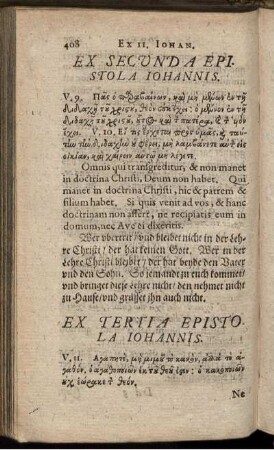 408 Ex II. Iohan.
EX SECVNDA EPI-
STOLA IOHANNIS.
V. 9. Πᾶς ὁ παραβαίνων, καὶ μὴ μένων ἐν τῇ
διδαχῇ τοῦ χριστοῦ, θεὸν οὐκ ἔχει· ὁ μένων ἐν τῇ
διδαχῇ τοῦ χριστοῦ, οὗτος καὶ τὸν πατέρα, καὶ τὸν υἱὸν
ἔχει. V. 10. Εἴ τις ἔρχεται πρὸς ὑμᾶς, καὶ ταύ-
την τὴν διδαχὴν οὐ φέρει, μὴ λαμβάνετε αὐτὸν εἰς
οἰκίαν, καὶ χαίρειν αὐτῷ μὴ λέγετε.
Omnis qui transgreditur, & non manet
in doctrina Christi, Deum non habet. Qui
manet in doctrina Christi, hic & patrem &
filium habet. Si quis venit ad vos, & hanc
doctrinam non affert, ne recipiatis eum in
domum, nec Ave ei dixeritis.
Wer übertritt/ und bleibet nicht in der Lehre
Christi/ der hat keinen Gott. Wer in der
Lehre Christi bleibet/ der hat beyde den Vater
und den Sohn. So jemand zu euch kommet/
und bringet diese Lehre nicht/ den nehmet nicht
zu Hause/ und grüsset ihn auch nicht.
EX TERTIA EPISTO-
LA IOHANNIS.
V. 11. Αγαπητὲ, μὴ μιμοῦ τὸ κακὸν, ἀλλὰ τὸ ἀ-
γαθόν, ὁ ἀγαθοποιῶν ἐκ τοῦ θεοῦ ἐστιν· ὁ κακοποιῶν
οὐχ ἑώρακε τὸν θεόν.
Ne